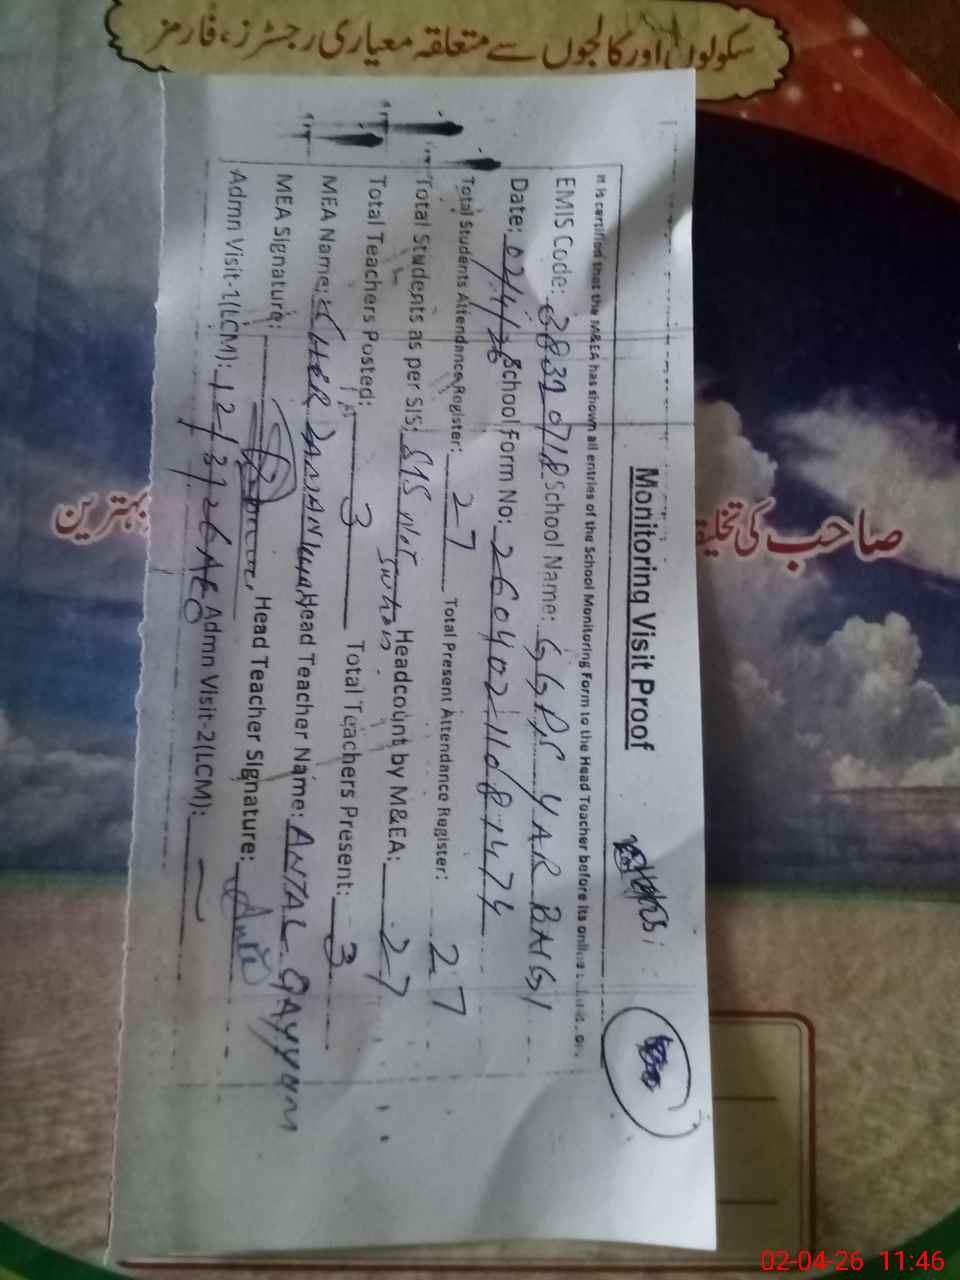 سکولوں اور کالجوں سے متعلقہ معیاری رجسٹرز، فارمز
Monitoring Visit Proof
It is certified that the M&EA has shown all entries of the School Monitoring Form to the Head Teacher before its online
EMIS Code: School Name: GGPS YAR BAGI
Date: 02/4/26 School Form No: 260402-11081474
Total Students Attendance Register: 27 Total Present Attendance Register: 27
Total Students as per SIS: SIS not Headcount by M&EA: 27
Total Teachers Posted: 3 Total Teachers Present: 3
MEA Name: SHER ZAMAN Head Teacher Name: QAYYUM
MEA Signature: Head Teacher Signature:
Admn Visit-1(LCM): 12/3/26 Admn Visit-2(LCM):
صاحب کی
بہترین
02-04-26 11:46